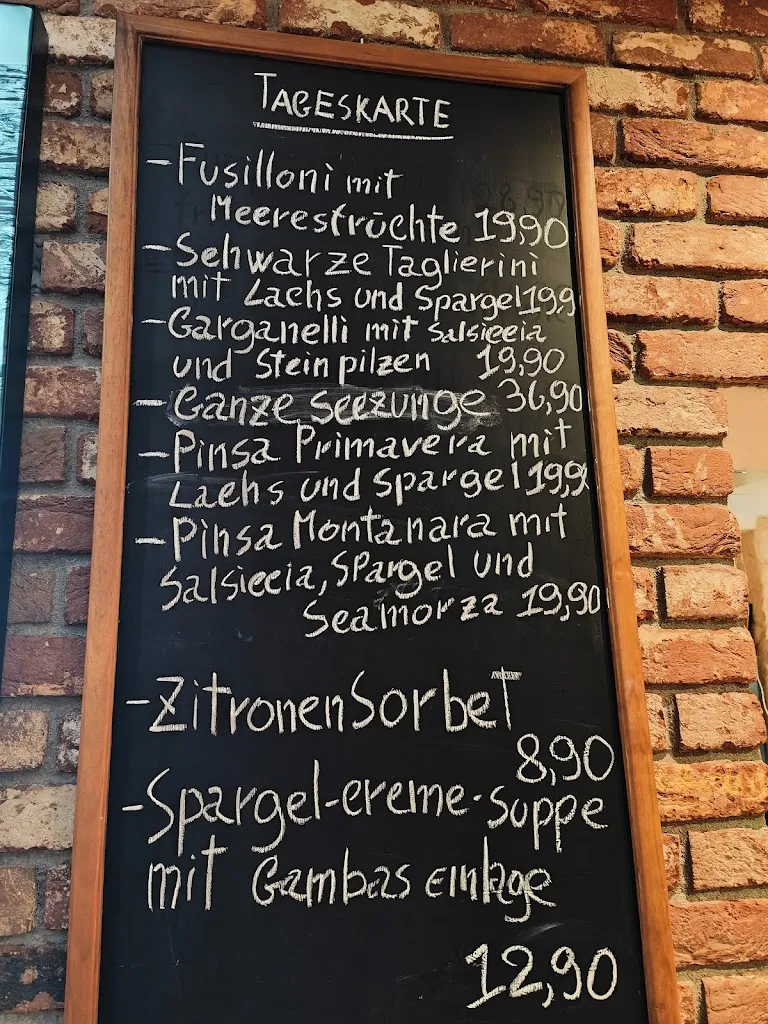 TAGESKARTE
- Fusilloni mit
Meeresfrüchte 19,90
- Schwarze Taglierini
mit Lachs und Spargel 19,9
- Garganelli mit Salsiccia
und Steinpilzen 19,90
- Ganze Seezunge 36,90
- Pinsa Primavera mit
Lachs und Spargel 19,90
- Pinsa Montanara mit
Salsiccia, Spargel und
Scamorza 19,90
- Zitronensorbet
8,90
- Spargel-creme-suppe
mit Gambas einlage
12,90